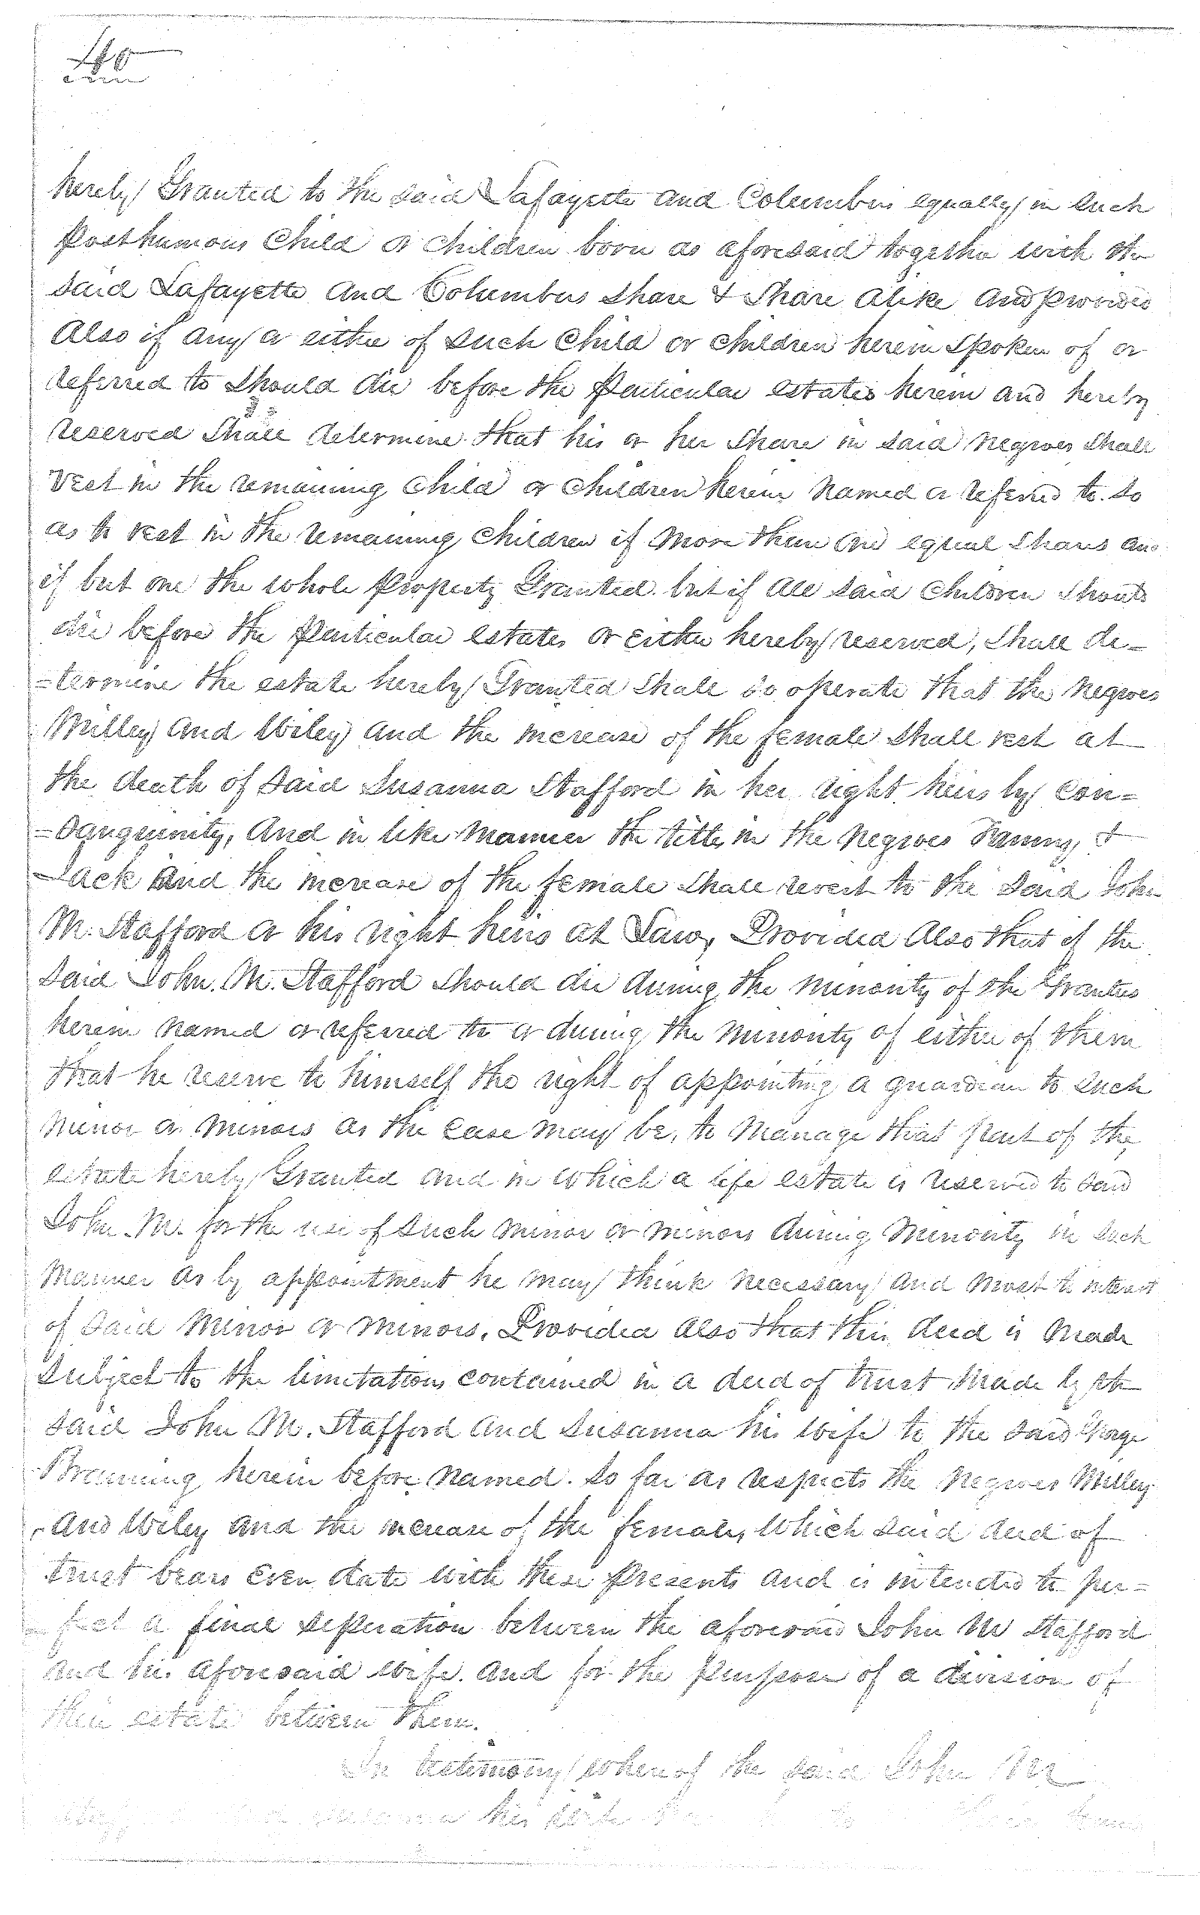 40
hereby Granted to the said Lafayette and Columbus equally in such
Posthumous Child or children born as aforesaid together with the
said Lafayette and Columbus share & share alike and provided
Also if any or either of such child or children herein spoken of or
referred to should die before the particular estates herein and hereby
reserved shall determine that his or her share in said negroes shall
vest in the remaining child or children herein named or referred to so
as to vest in the remaining children if more than one equal shares and
if but one the whole property Granted but if all said children should
die before the particular estates or either hereby reserved, shall de-
-termine the estate hereby Granted shall so operate that the negroes
Milley and Wiley and the increase of the female shall vest at
the death of said Susanna Stafford in her right heirs by con=
=sanguinity, And in like manner the title in the negroes Fanny &
Jack and the increase of the female shall revert to the said John
M. Stafford or his right heirs at Law, Provided Also that if the
said John M. Stafford should die during the minority of the Grantees
herein named or referred to or during the minority of either of them
that he reserve to himself the right of appointing a guardian to such
minor or minors as the case may be, to manage that part of the
estate hereby Granted and in which a life estate is reserved to said
John M. for the use of such minor or minors during minority in such
manner as by appointment he may think necessary and most to interest
of said minor or minors. Provided also that this deed is made
subject to the limitations contained in a deed of trust made by the
said John M. Stafford and Susanna his wife to the said George
Branning herein before named. So far as respects the negroes Milley
And Wiley and the increase of the female, which said deed of
trust bears even date with these presents and is intended to per=
fect a final seperation between the aforesaid John M Stafford
and his aforesaid wife. and for the purpose of a division of
their estate between them.
In testimony whereof the said John M
Susanna his wife